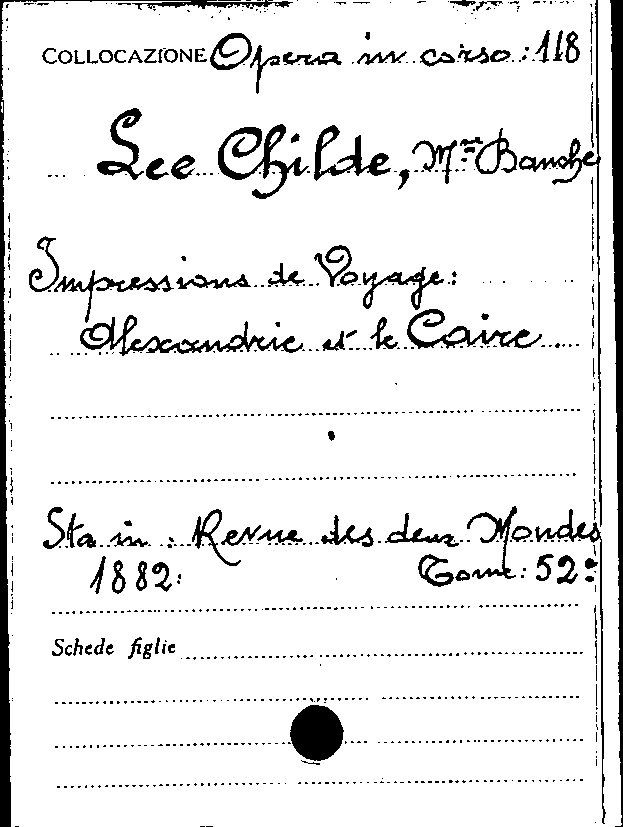 COLLOCAZIONE Opera in corso: 118
Lee Childe, Mme Banche
Impressions de Voyage:
Alexandrie et le Caire
Sta in: Revue des deux Mondes
1882: Tome: 52º
Schede figlie